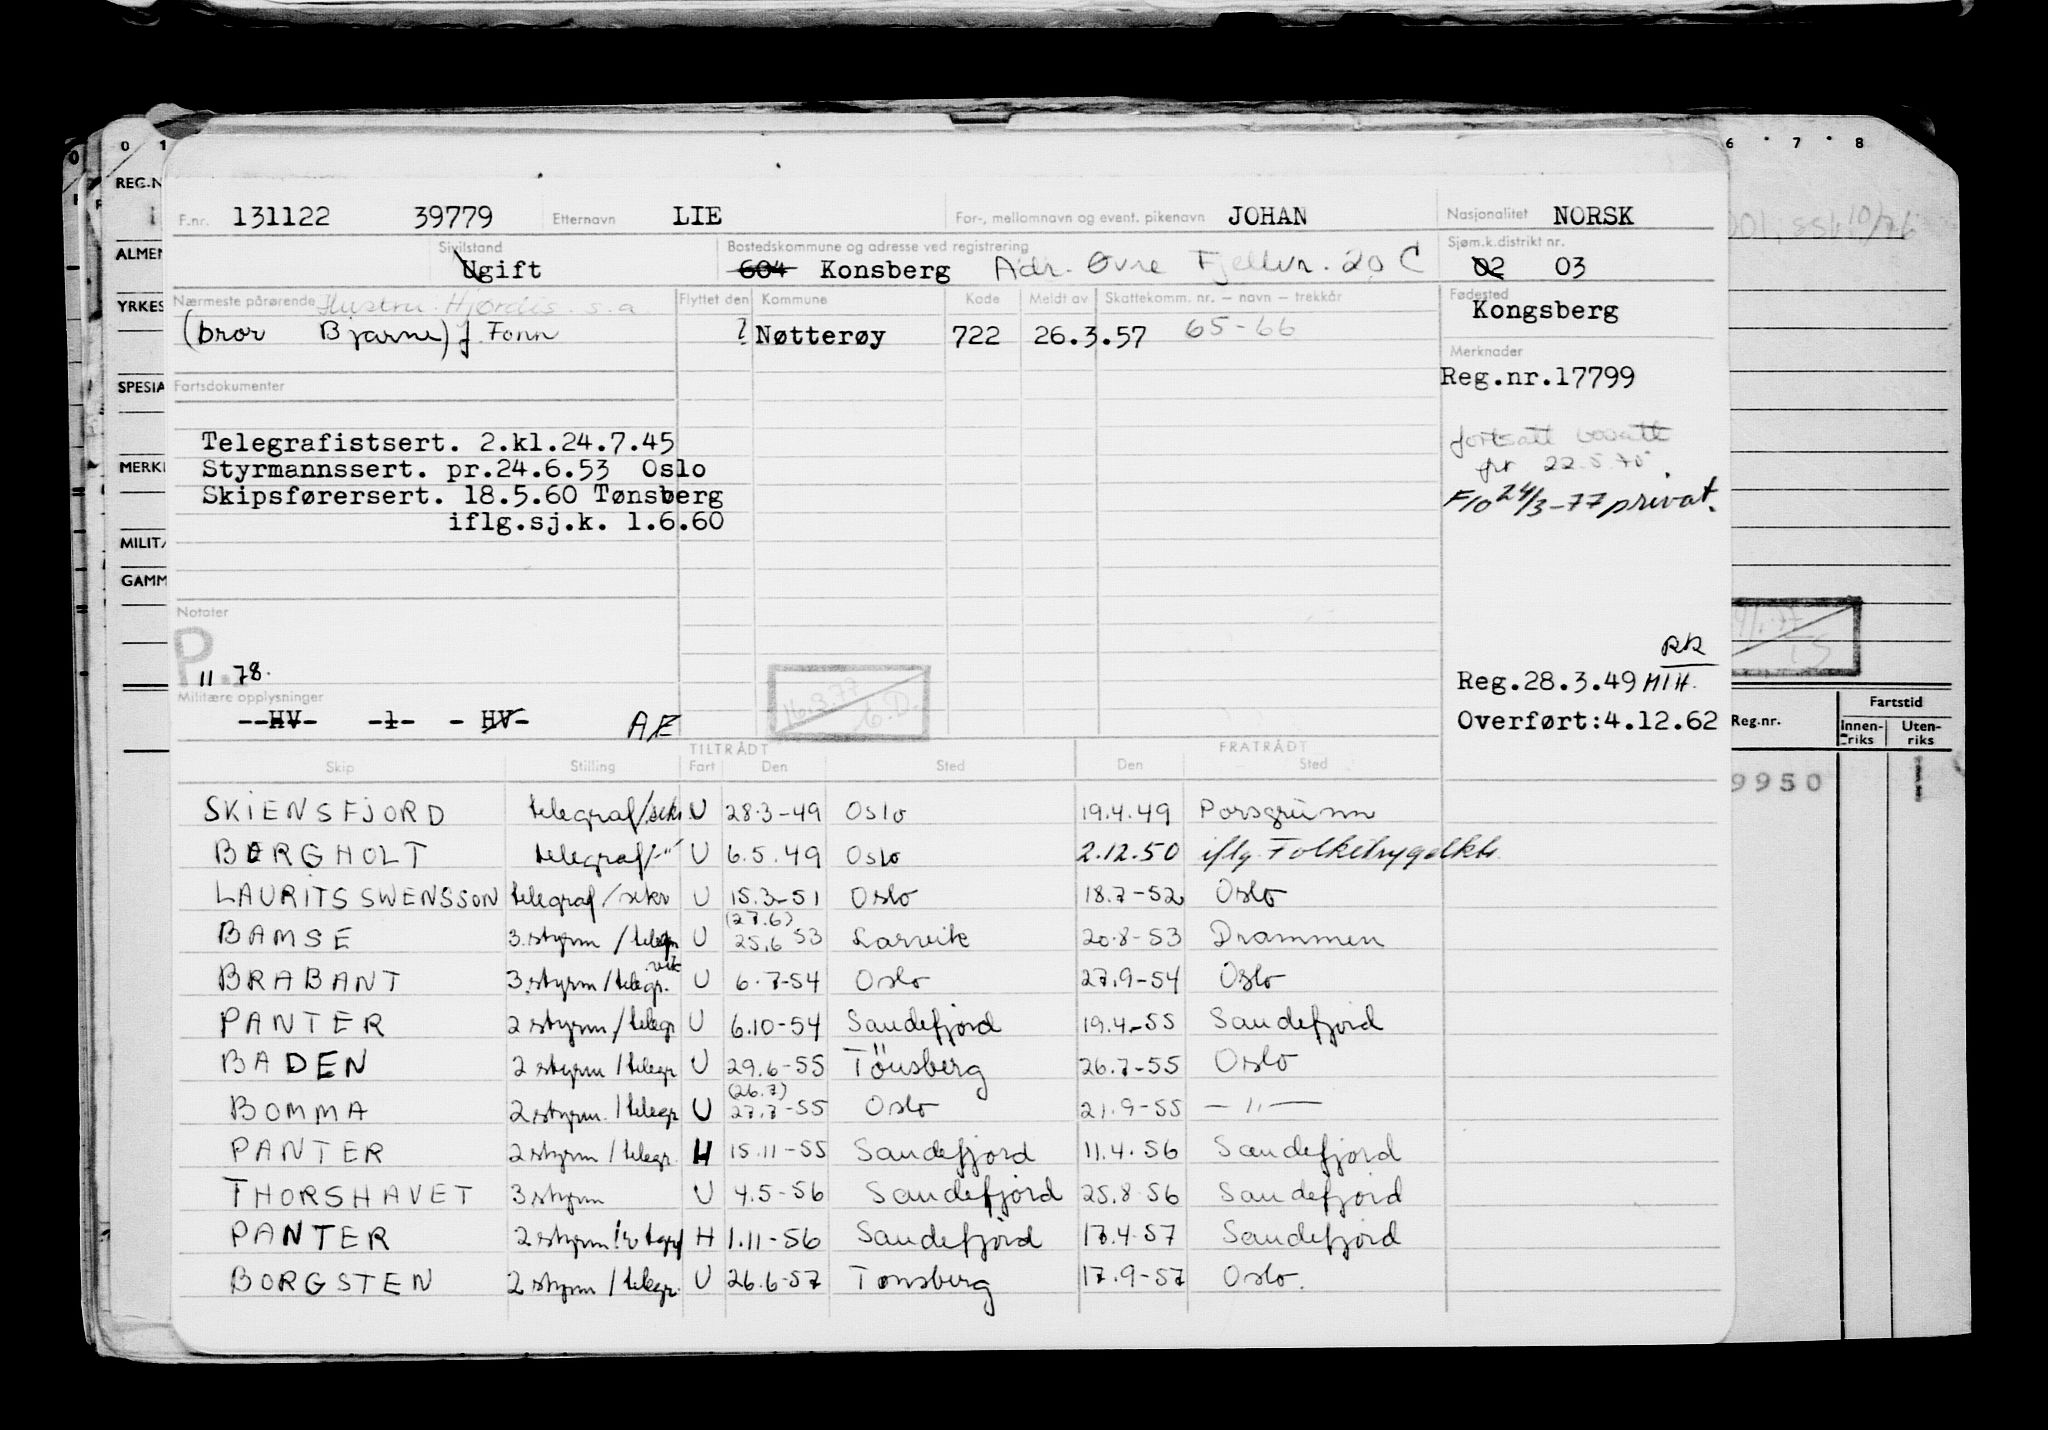 0 1 6 7 8
REG.N
F.nr. 131122 39779 Etternavn LIE For-, mellomnavn og event. pikenavn JOHAN Nasjonalitet NORSK
ALMEN
Sivilstand Ugift Bostedskommune og adresse ved registrering 604 Konsberg Adr. Øvre Fjellvn. 20 C Sjøm.k.distrikt nr. 02 03
YRKES
Nærmeste pårørende Hustru Hjørdis s.a. Flyttet den Kommune Kode Meldt av Skattekomm. nr. — navn — trekkår Fødested Kongsberg
(bror Bjarne) f. Fonn ? Nøtterøy 722 26.3.57 65-66
Merknader
SPESIA
Fartsdokumenter
Reg.nr.17799
Telegrafistsert. 2.kl.24.7.45
fortsatt bosatt
MERKI
Styrmannssert. pr.24.6.53 Oslo
pr 22.5.70
Skipsførersert. 18.5.60 Tønsberg
F10 24/3-77 privat.
iflg.sj.k. 1.6.60
MILIT
GAMM
Notater
P.
11.78.
RR
16.3.77
Reg.28.3.49 MIH.
Militære opplysninger
--HV- -1- - HV- AE
Overført:4.12.62
Reg.nr. Fartstid
Innen-riks Uten-riks
9950
TILTRÅDT FRATRÅDT
Skip Stilling Fart Den Sted Den Sted
SKIENSFJORD telegraf/sekr. U 28.3-49 Oslo 19.4.49 Porsgrunn
BERGHOLT telegraf/-"- U 6.5.49 Oslo 2.12.50 iflg. Folketrygdktr.
LAURITS SWENSSON telegraf/sekr U 15.3-51 Oslo 18.7-52 Oslo
(27.6)
BAMSE 3.styrm/telegr U 25.6 53 Larvik 20.8-53 Drammen
vik
BRABANT 3.styrm/telegr. U 6.7-54 Oslo 27.9-54 Oslo
PANTER 2 styrm/telegr U 6.10-54 Sandefjord 19.4-55 Sandefjord
BADEN 2 styrm/telegr U 29.6-55 Tönsberg 26.7-55 Oslo
(26.7)
BOMMA 2 styrm./telegr U 27.7-55 Oslo 21.9-55 — " —
PANTER 2 styrm/telegr. H 15.11-55 Sandefjord 11.4.56 Sandefjord
THORSHAVET 3 styrm U 4.5-56 Sandefjord 25.8.56 Sandefjord
PANTER 2 styrm H 1.11-56 Sandefjord 17.4.57 Sandefjord
BORGSTEN 2 styrm/telegr. U 26.6-57 Tønsberg 17.9-57 Oslo.